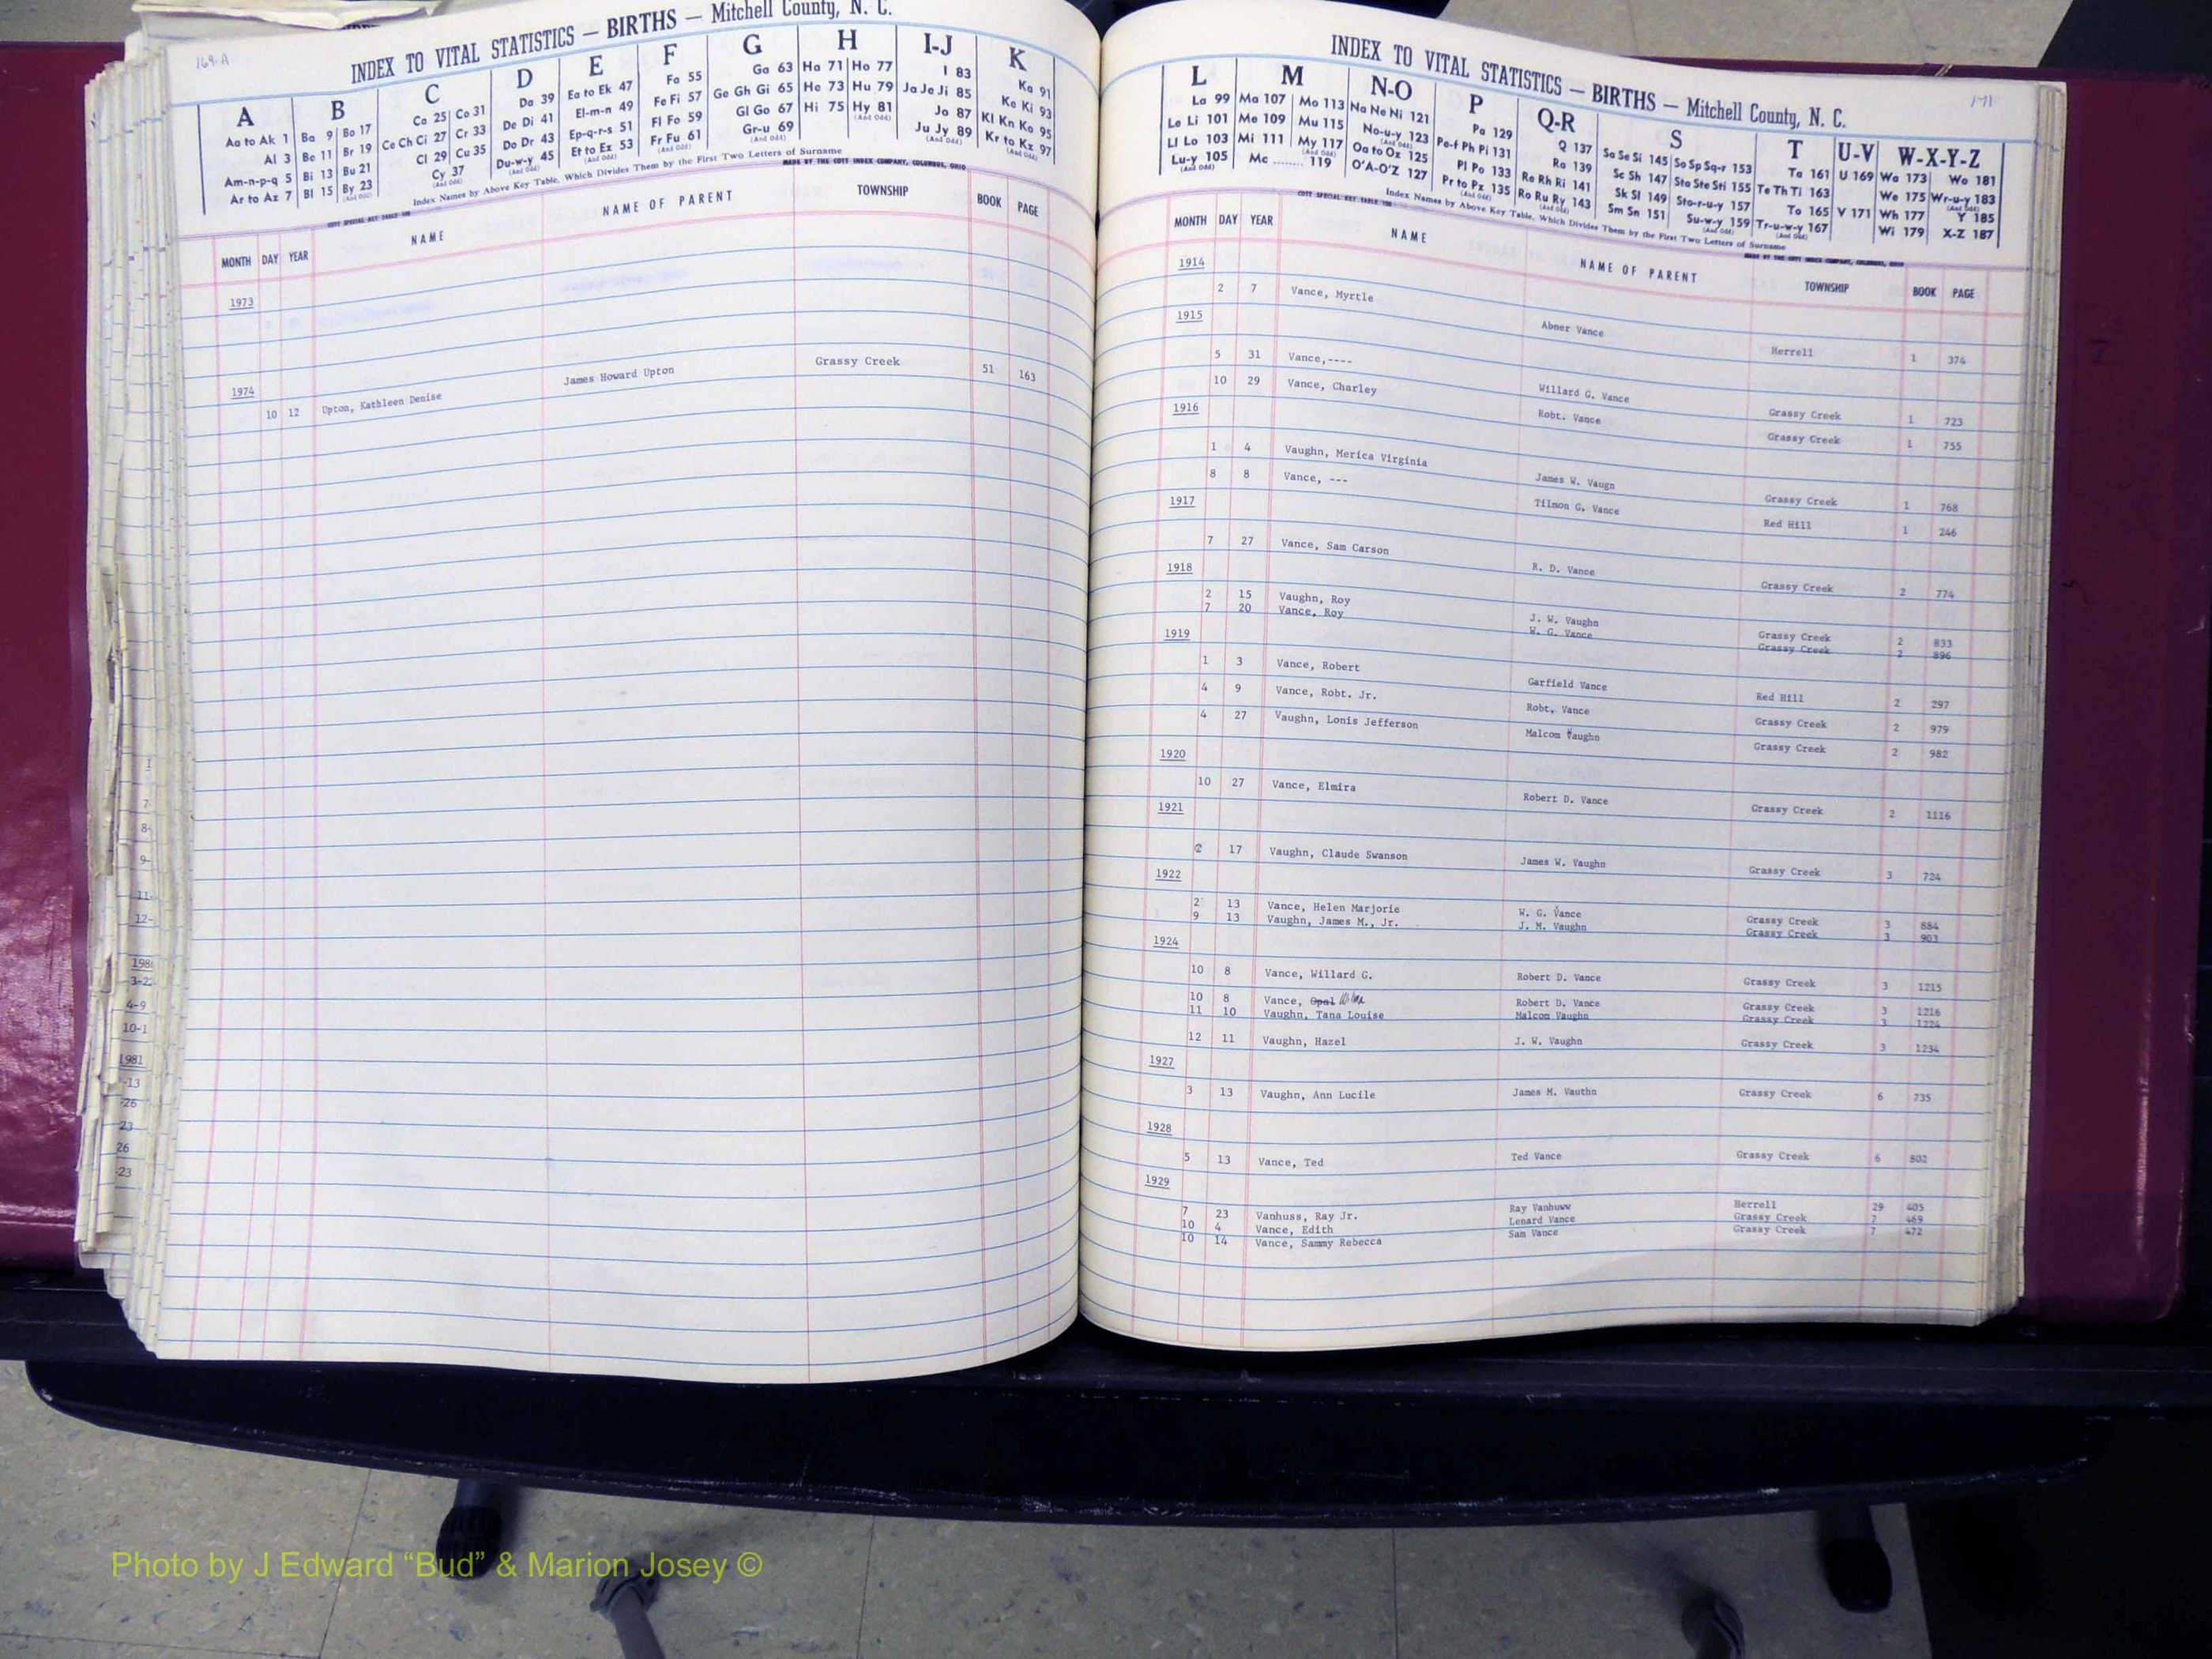 169-A
INDEX TO VITAL STATISTICS — BIRTHS — Mitchell County, N. C.
A B C D E F G H I-J K
Aa to Ak 1 Ba 9 Bo 17 Ca 25 Co 31 Da 39 Ea to Ek 47 Fa 55 Ga 63 Ha 71 Ho 77 I 83 Ka 91
Al 3 Be 11 Br 19 Ce Ch Ci 27 Cr 33 De Di 41 El-m-n 49 Fe Fi 57 Ge Gh Gi 65 He 73 Hu 79 Ja Je Ji 85 Ke Ki 93
Am-n-p-q 5 Bi 13 Bu 21 Cl 29 Cu 35 Do Dr 43 Ep-q-r-s 51 Fl Fo 59 Gl Go 67 Hi 75 Hy 81 Jo 87 Kl Kn Ko 95
Ar to Az 7 Bl 15 By 23 Cy 37 Du-w-y 45 Et to Ez 53 Fr Fu 61 Gr-u 69 Ju Jy 89 Kr to Kz 97
Index Names by Above Key Table, Which Divides Them by the First Two Letters of Surname
MADE BY THE COTT INDEX COMPANY, COLUMBUS, OHIO
MONTH DAY YEAR NAME NAME OF PARENT TOWNSHIP BOOK PAGE
1973
1974
10 12 Upton, Kathleen Denise James Howard Upton Grassy Creek 51 163
171
INDEX TO VITAL STATISTICS — BIRTHS — Mitchell County, N. C.
L M N-O P Q-R S T U-V W-X-Y-Z
La 99 Ma 107 Mo 113 Na Ne Ni 121 Pa 129 Q 137 Sa Se Si 145 So Sp Sq-r 153 Ta 161 U 169 Wa 173 Wo 181
Le Li 101 Me 109 Mu 115 No-u-y 123 Pe-f Ph Pi 131 Ra 139 Sc Sh 147 Sta Ste Sti 155 Te Th Ti 163 We 175 Wr-u-y 183
Ll Lo 103 Mi 111 My 117 Oa to Oz 125 Pl Po 133 Re Rh Ri 141 Sk Sl 149 Sto-r-u-y 157 To 165 V 171 Wh 177 Y 185
Lu-y 105 Mc ........ 119 O'A-O'Z 127 Pr to Pz 135 Ro Ru Ry 143 Sm Sn 151 Su-w-y 159 Tr-u-w-y 167 Wi 179 X-Z 187
Index Names by Above Key Table, Which Divides Them by the First Two Letters of Surname
MADE BY THE COTT INDEX COMPANY, COLUMBUS, OHIO
MONTH DAY YEAR NAME NAME OF PARENT TOWNSHIP BOOK PAGE
1914
2 7 Vance, Myrtle Abner Vance Herrell 1 374
1915
5 31 Vance,---- Willard G. Vance Grassy Creek 1 723
10 29 Vance, Charley Robt. Vance Grassy Creek 1 755
1916
1 4 Vaughn, Merica Virginia James W. Vaugn Grassy Creek 1 768
8 8 Vance, --- Tilmon G. Vance Red Hill 1 246
1917
7 27 Vance, Sam Carson R. D. Vance Grassy Creek 2 774
1918
2 15 Vaughn, Roy J. W. Vaughn Grassy Creek 2 833
7 20 Vance, Roy W. G. Vance Grassy Creek 2 896
1919
1 3 Vance, Robert Garfield Vance Red Hill 2 297
4 9 Vance, Robt. Jr. Robt. Vance Grassy Creek 2 979
4 27 Vaughn, Lonis Jefferson Malcom Vaughn Grassy Creek 2 982
1920
10 27 Vance, Elmira Robert D. Vance Grassy Creek 2 1116
1921
2 17 Vaughn, Claude Swanson James W. Vaughn Grassy Creek 3 724
1922
2 13 Vance, Helen Marjorie W. G. Vance Grassy Creek 3 884
9 13 Vaughn, James M., Jr. J. M. Vaughn Grassy Creek 3 903
1924
10 8 Vance, Willard G. Robert D. Vance Grassy Creek 3 1215
10 8 Vance, Opal Wilma Robert D. Vance Grassy Creek 3 1216
11 10 Vaughn, Tana Louise Malcom Vaughn Grassy Creek 3 1224
12 11 Vaughn, Hazel J. W. Vaughn Grassy Creek 3 1234
1927
3 13 Vaughn, Ann Lucile James M. Vauthn Grassy Creek 6 735
1928
5 13 Vance, Ted Ted Vance Grassy Creek 6 802
1929
7 23 Vanhuss, Ray Jr. Ray Vanhuww Herrell 29 405
10 4 Vance, Edith Lenard Vance Grassy Creek 7 469
10 14 Vance, Sammy Rebecca Sam Vance Grassy Creek 7 472
1
7
8-
9-
11-
12-
198
3-22
4-9
10-1
1981
-13
-26
23
26
-23
Photo by J Edward “Bud” & Marion Josey ©